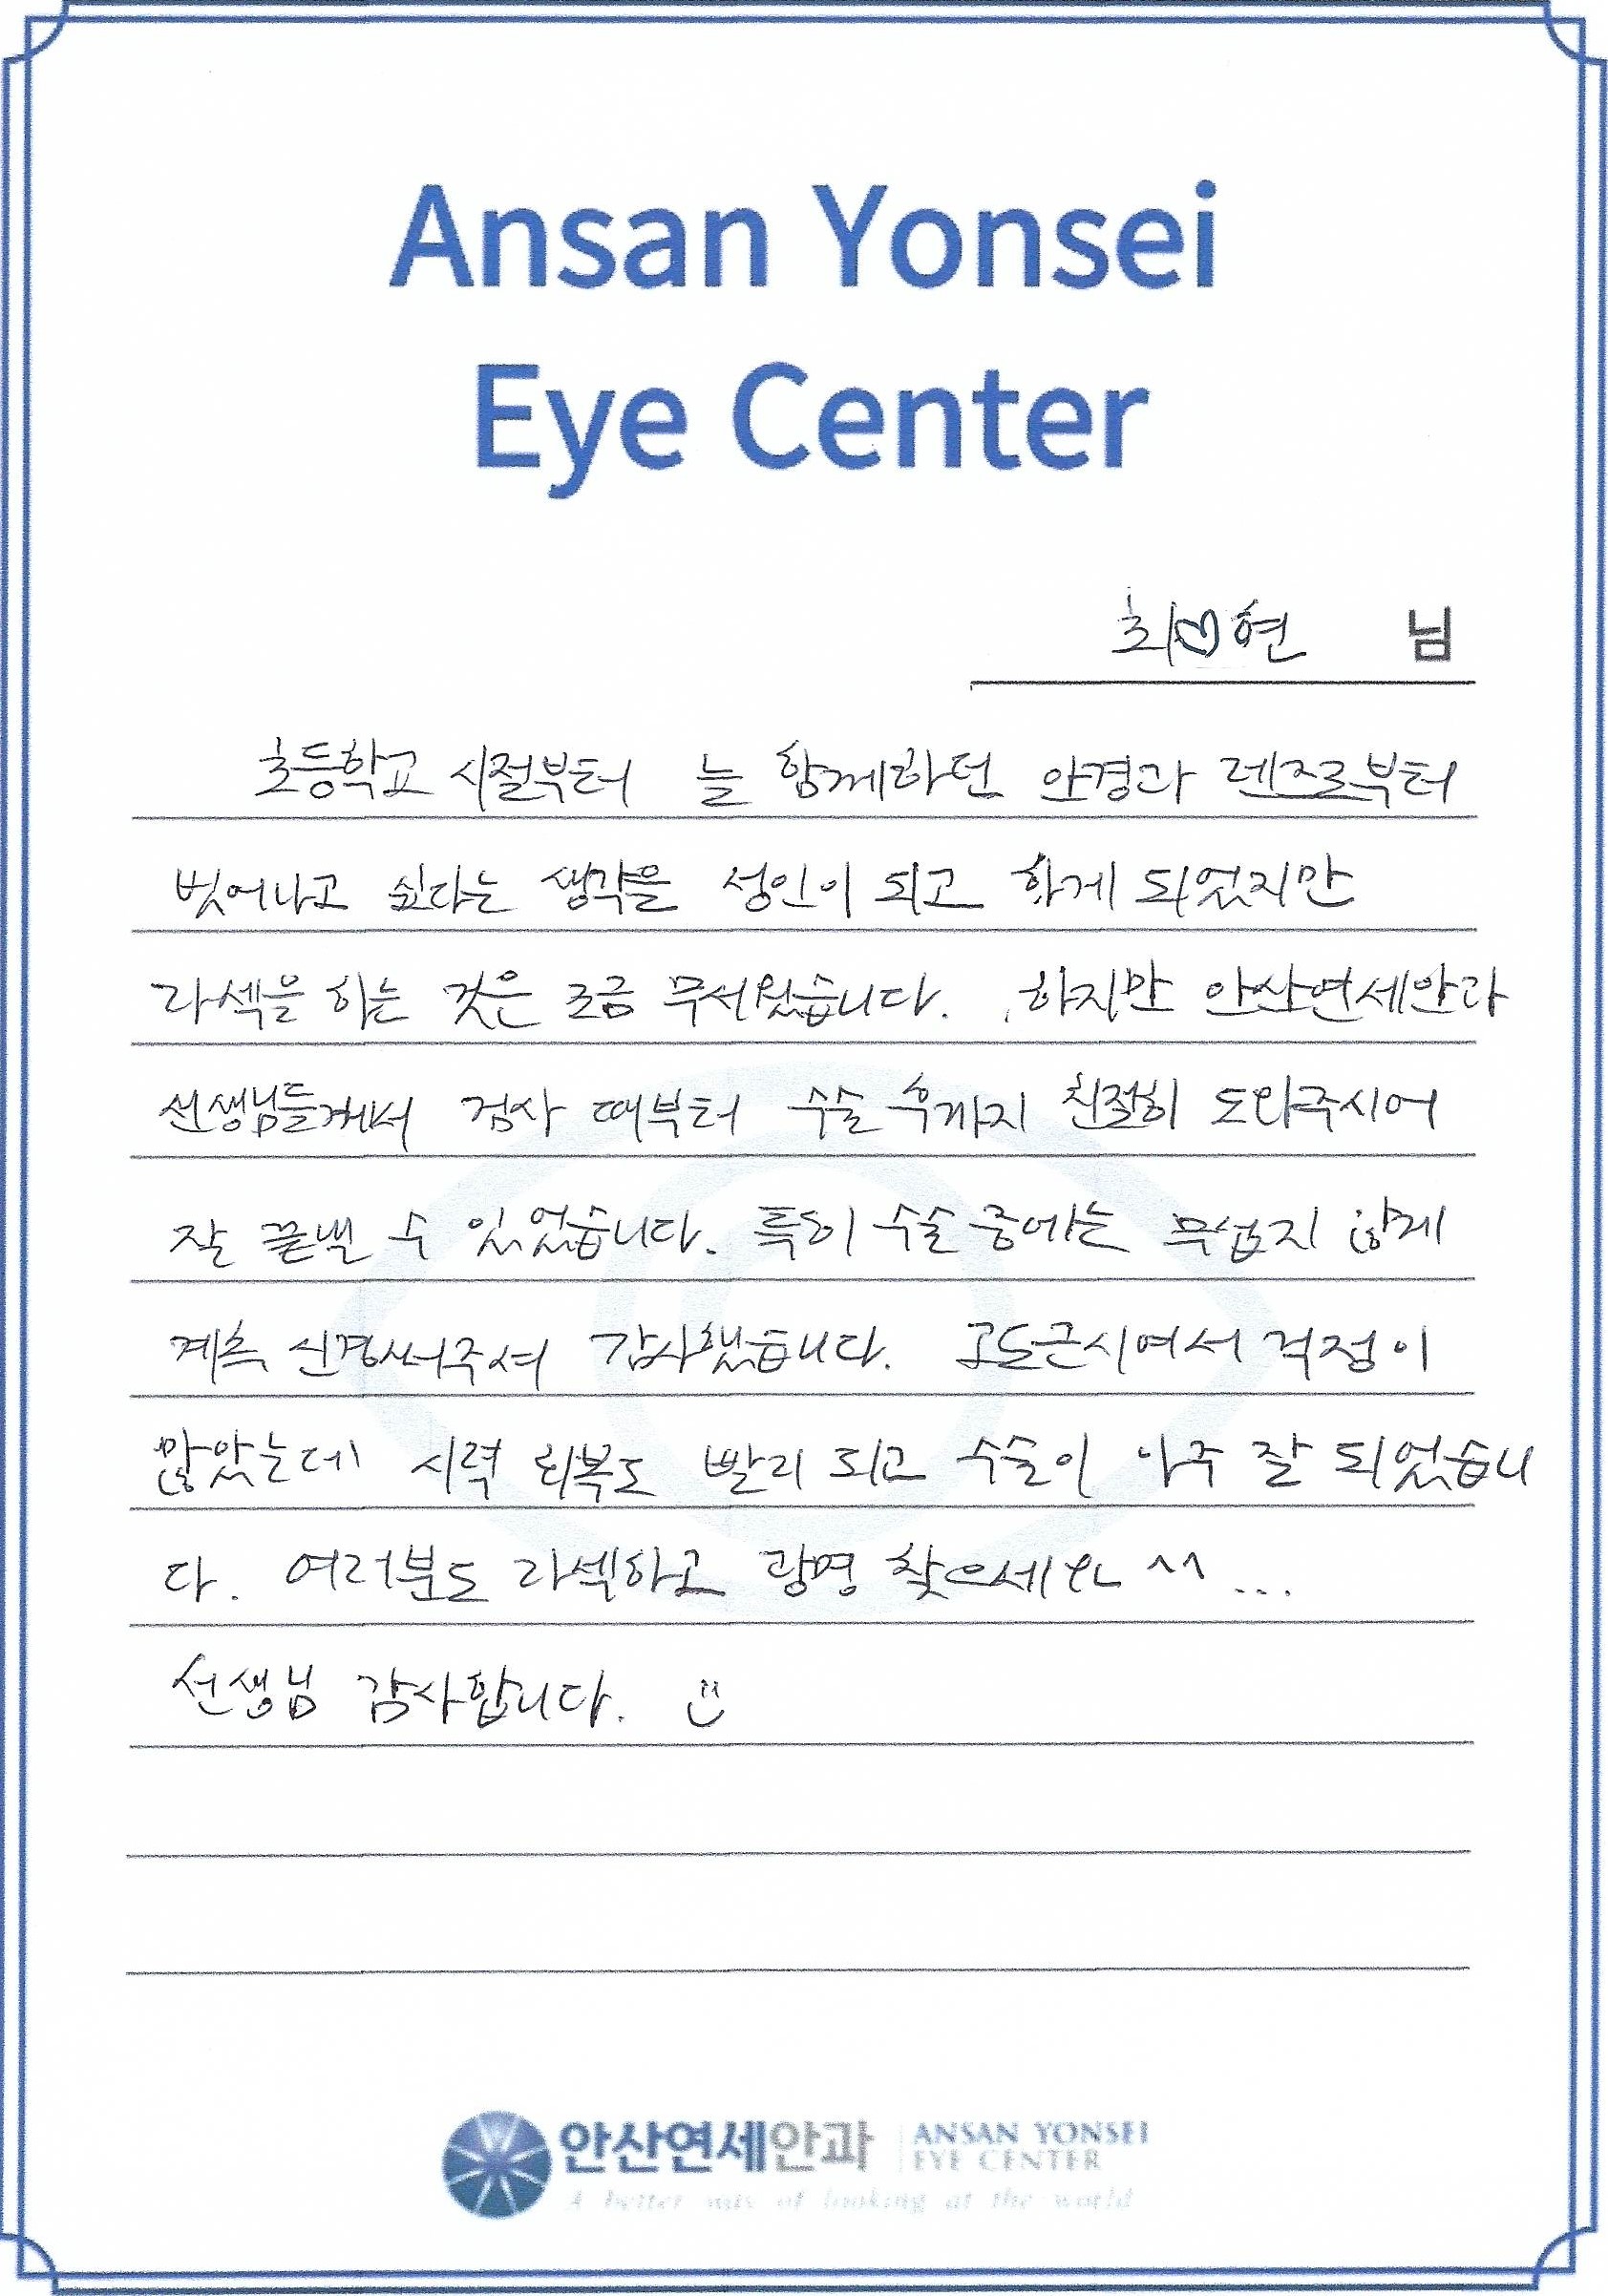 Ansan Yonsei
Eye Center
최♡현 님
초등학교 시절부터 늘 함께하던 안경과 렌즈로부터
벗어나고 싶다는 생각을 성인이 되고 하게 되었지만
라섹을 하는 것은 조금 무서웠습니다. 하지만 안산연세안과
선생님들께서 검사 때부터 수술 후까지 친절히 도와주시어
잘 끝낼 수 있었습니다. 특히 수술 중에는 무섭지 않게
계속 신경써주셔 감사했습니다. 고도근시여서 걱정이
많았는데 시력 회복도 빨리 되고 수술이 아주 잘 되었습니
다. 여러분도 라섹하고 광명 찾으세요 ^^...
선생님 감사합니다.
안산연세안과 ANSAN YONSEI
EYE CENTER
A better way of looking at the world